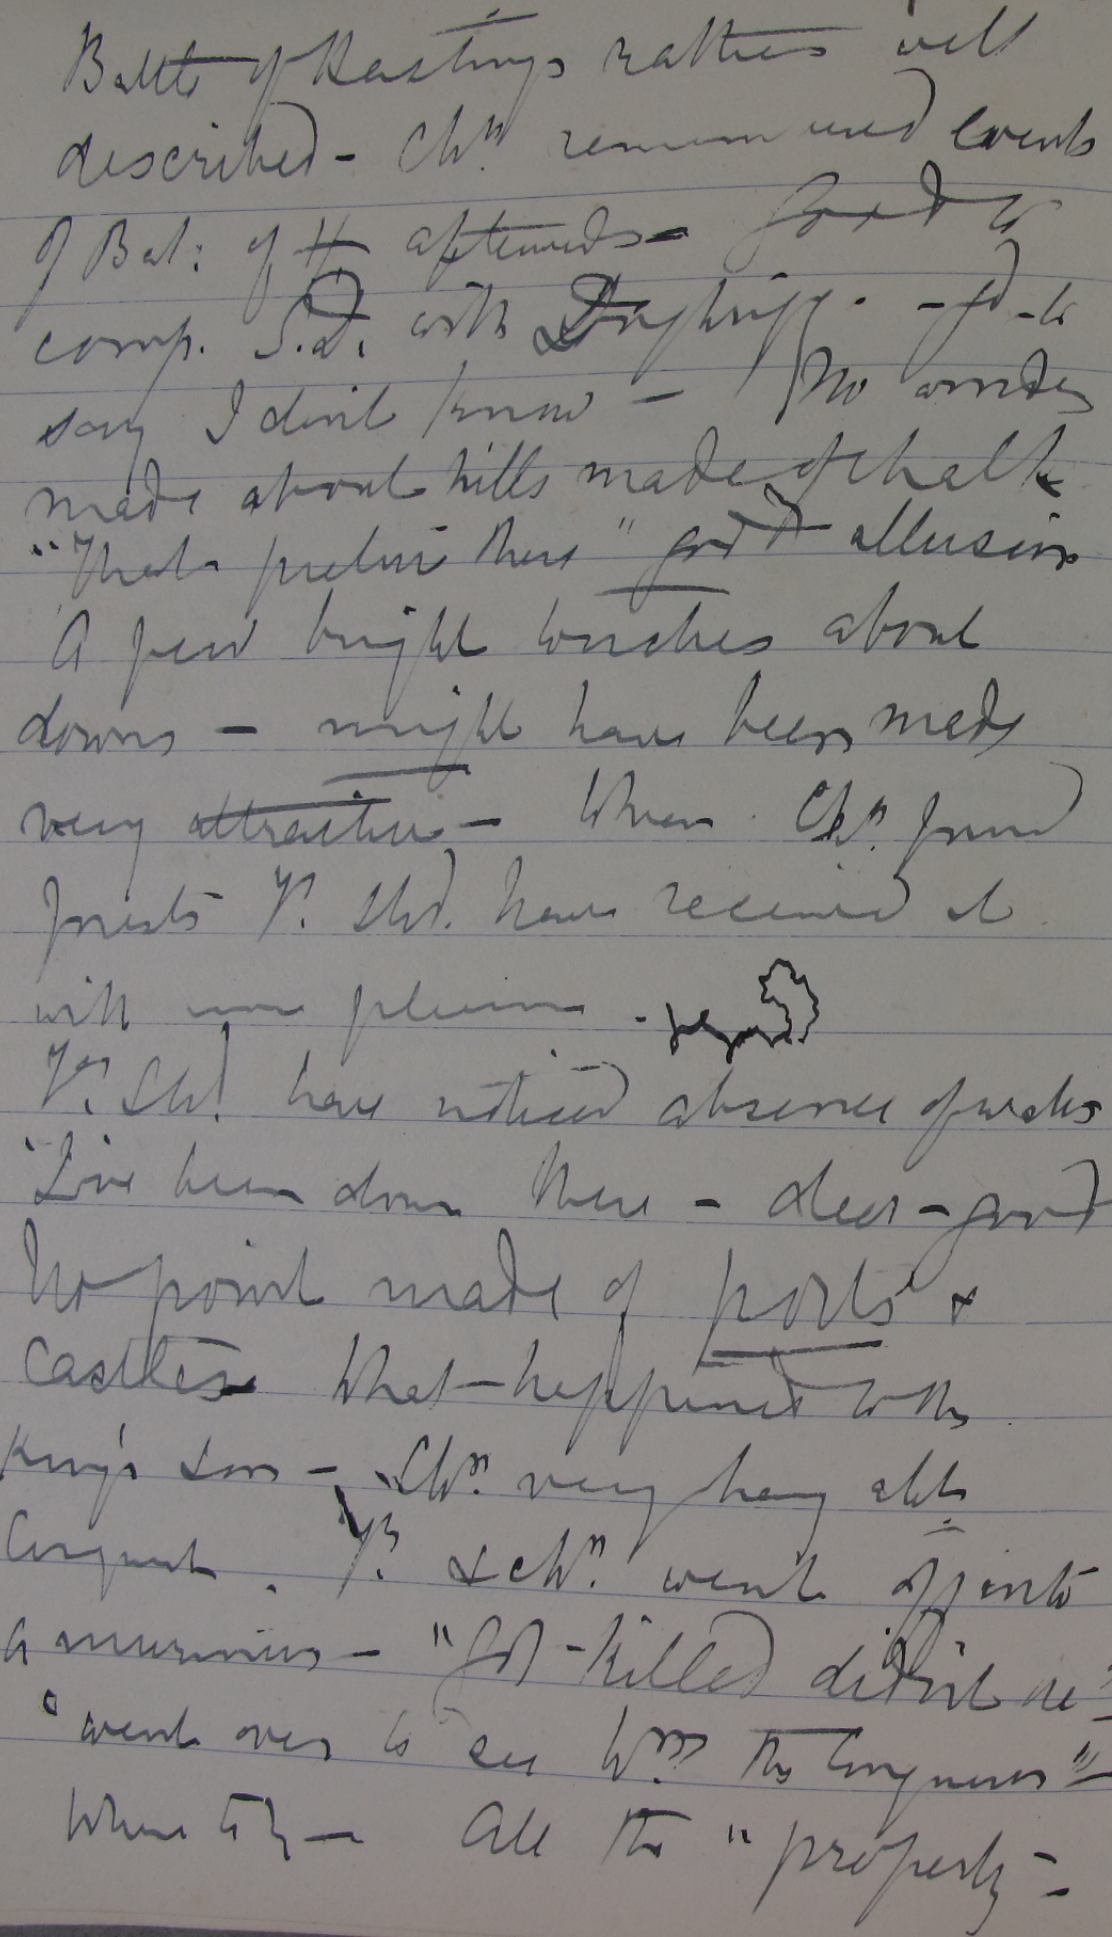 Battle of Hastings rather well
described - Chn remembered events
of Bat: of H afterwards - Good to
comp. S.D. with - gd - to
say I don't know - No wonder
made about hills made of chalk
"That's prehis there" good allusion
A few bright touches about
downs - might have been made
very attractive - When Chn found
forests Tr. shd. have received it
with more pleasure -
Tr. shd have noticed absence of
"I've been down there - dear - good
No point made of ports &
Castles What happened to the
King's son - Chn very hazy abt
Conquest. Tr. & chn. went off into
a murmur - "Got - Killed didn't he"
"went over to see Wm the Conqueror"
All the "property -